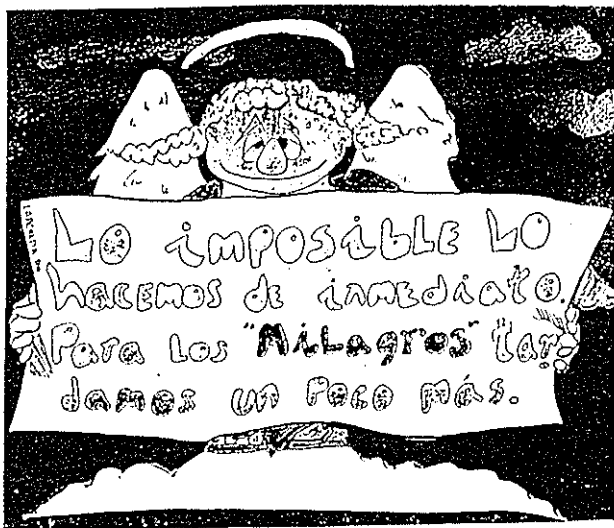 Lo imposible lo
hacemos de inmediato.
Para los "Milagros" tar
damos un poco más.